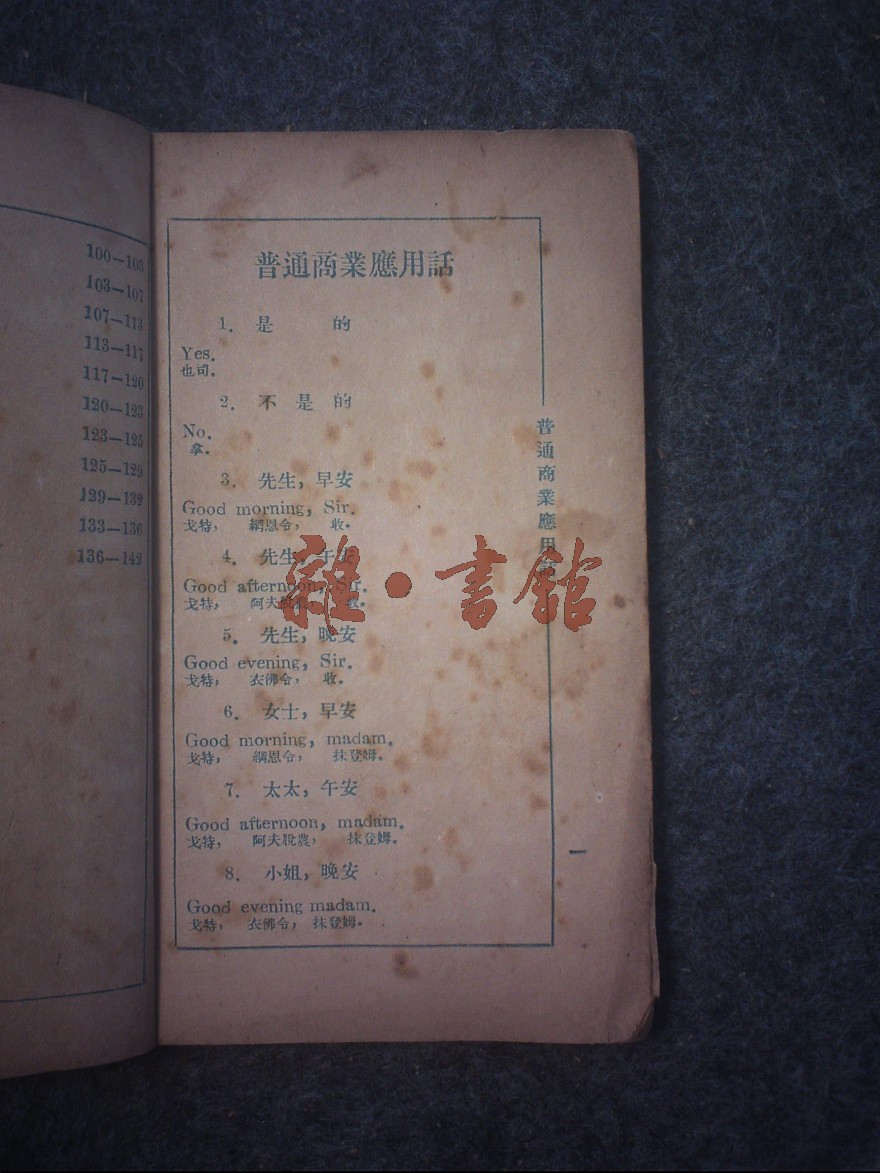 100—103
103—107
107—113
113—117
117—120
120—123
123—125
125—129
129—132
133—136
136—142
普通商業應用話
1. 是 的
Yes.
也司.
2. 不 是 的
No.
拿.
3. 先生, 早安
Good morning, Sir.
戈特, 綱恩令, 收.
4. 先生, 午安
Good afternoon, Sir.
戈特, 阿夫脫農, 收.
5. 先生, 晚安
Good evening, Sir.
戈特, 衣佛令, 收.
6. 女士, 早安
Good morning, madam.
戈特, 綱恩令, 抹登姆.
7. 太太, 午安
Good afternoon, madam.
戈特, 阿夫脫農, 抹登姆.
8. 小姐, 晚安
Good evening madam.
戈特, 衣佛令, 抹登姆.
普通商業應用話
一
雜·書館